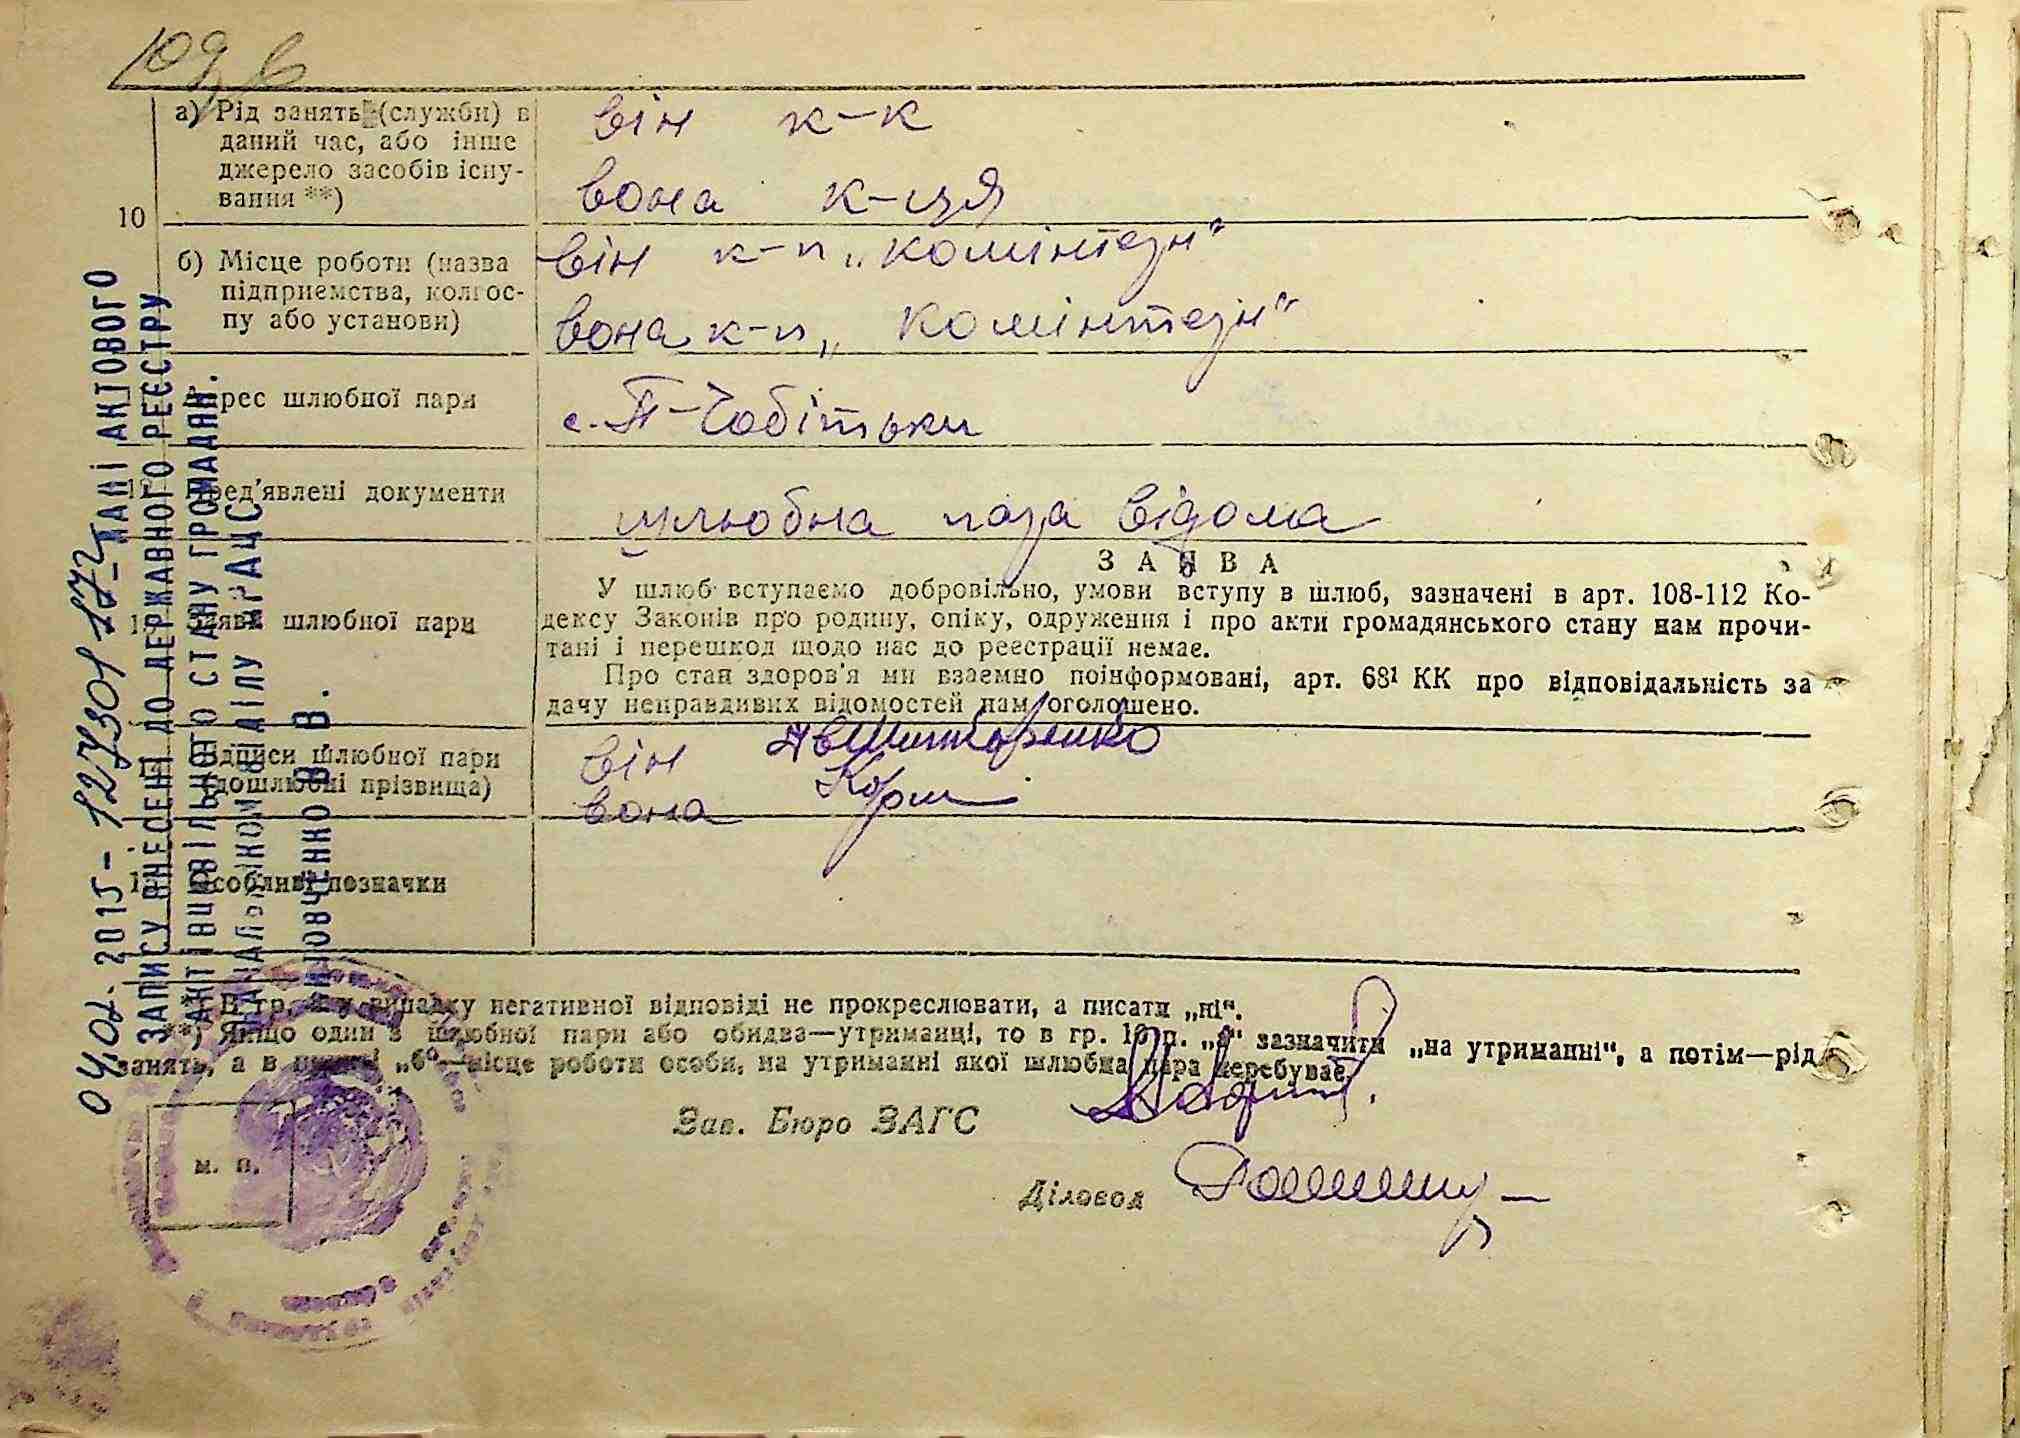 109 в
а) Рід занять (служби) в
даний час, або інше
джерело засобів існу-
вання **)
він к-к
вона к-ця
10
б) Місце роботи (назва
підприємства, колгос-
пу або установи)
він к-п „Комінтерн"
вона к-п „Комінтерн"
Адрес шлюбної пари
с. П-Чобітьки
Пред'явлені документи
шлюбна пара відома
Заяви шлюбної пари
ЗАЯВА
У шлюб вступаємо добровільно, умови вступу в шлюб, зазначені в арт. 108-112 Ко-
дексу Законів про родину, опіку, одруження і про акти громадянського стану нам прочи-
тані і перешкод щодо нас до реєстрації немає.
Про стан здоров'я ми взаємно поінформовані, арт. 68¹ КК про відповідальність за
дачу неправдивих відомостей нам оголошено.
Підписи шлюбної пари
(дошлюбні прізвища)
він
вона Корж
Особливі позначки
*) В гр. у випадку негативної відповіді не прокреслювати, а писати „ні".
**) Якщо один з шлюбної пари або обидва—утриманці, то в гр. 10 п. „а" зазначити „на утриманні", а потім—рід
занять, а в пункті „б"—місце роботи особи, на утриманні якої шлюбна пара перебуває.
Зав. Бюро ЗАГС
Діловод
м. п.
04.02.2015- 127301172 ДАНІ АКТОВОГО
ЗАПИСУ ВНЕСЕНІ ДО ДЕРЖАВНОГО РЕЄСТРУ
АКТІВ ЦИВІЛЬНОГО СТАНУ ГРОМАДЯН.
НАЧАЛЬНИКОМ ВІДДІЛУ ДРАЦС
В. В.